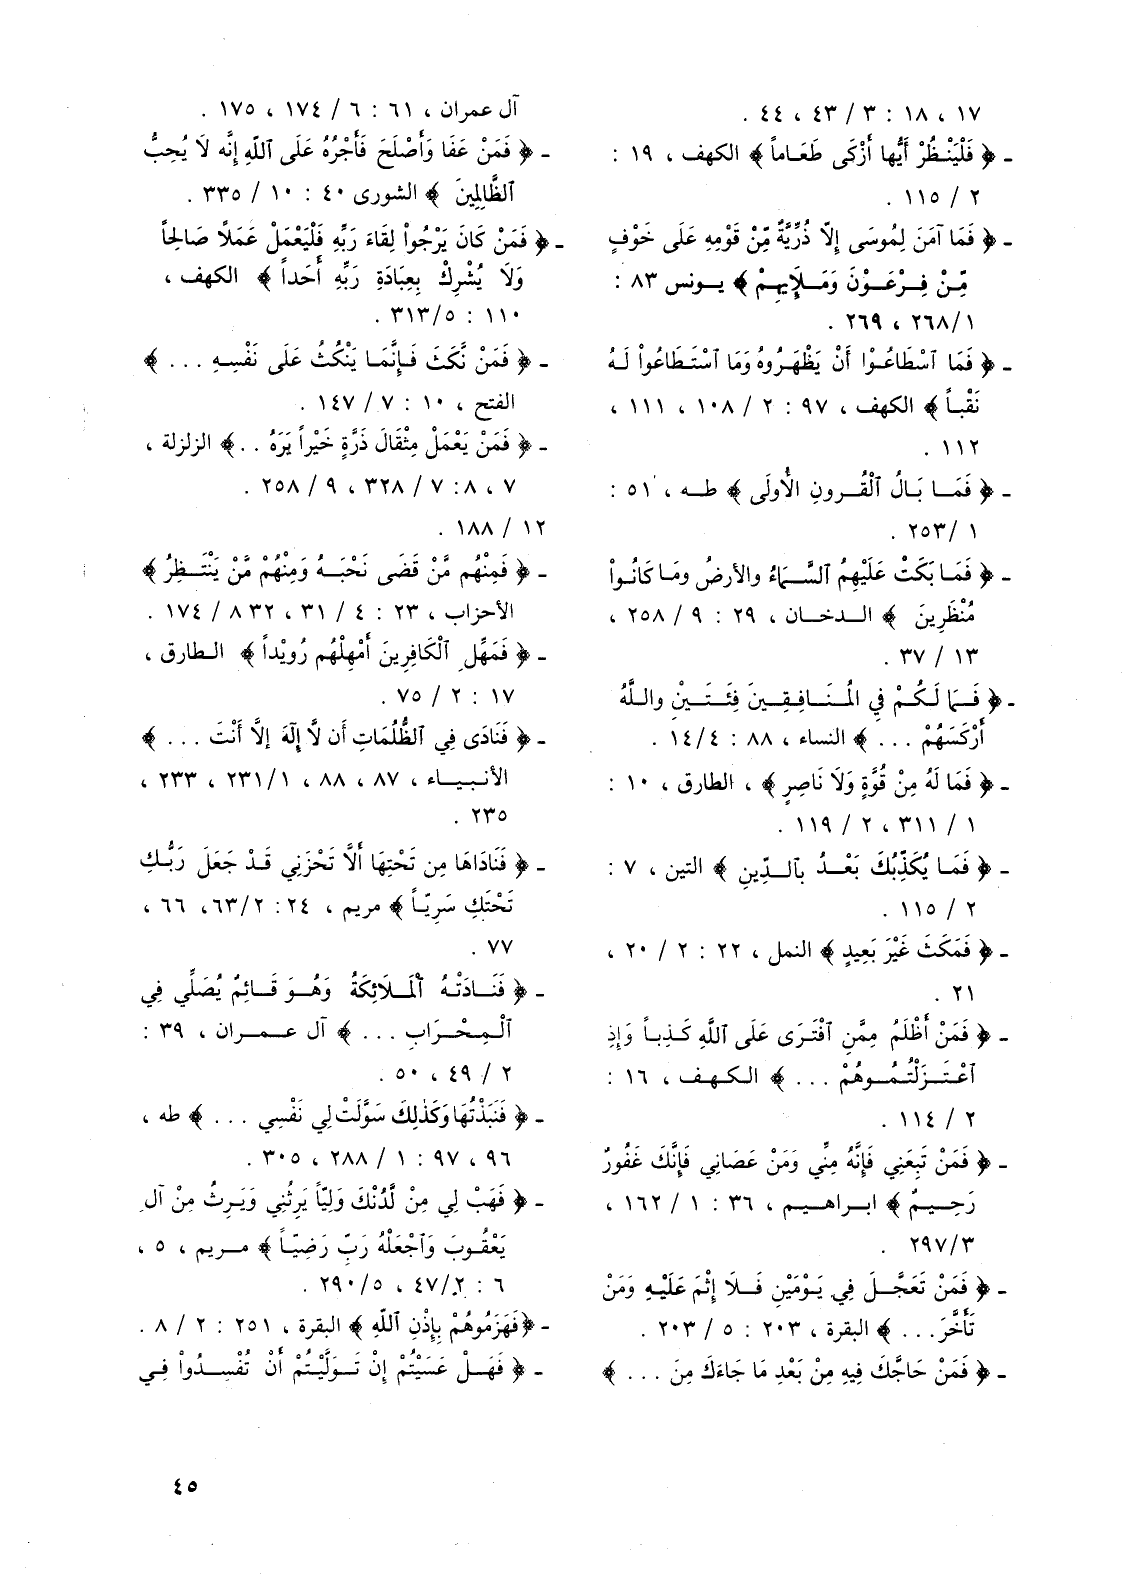 ١٧ ، ١٨ : ٣ / ٤٣ ، ٤٤ .
- ﴿ فَلْيَنْظُرْ أَيُّها أَزْكَى طَعَاماً ﴾ الكهف ، ١٩ :
٢ / ١١٥ .
- ﴿ فَمَا آمَنَ لِمُوسَى إِلاّ ذُرِّيَّةٌ مِّنْ قَوْمِهِ عَلَى خَوْفٍ
مِّنْ فِرْعَوْنَ وَمَلَإِيهِمْ ﴾ يونس ٨٣ :
٢٦٨/١ ، ٢٦٩ .
- ﴿ فَمَا ٱسْطَاعُوْا أَنْ يَظْهَرُوهُ وَمَا ٱسْتَطَاعُواْ لَهُ
نَقْباً ﴾ الكهف ، ٩٧ : ٢ / ١٠٨ ، ١١١ ،
١١٢ .
- ﴿ فَمَا بَالُ ٱلْقُرونِ الأُولَى ﴾ طه ، ٥١ :
١ /٢٥٣ .
- ﴿ فَمَا بَكَتْ عَلَيْهِمُ ٱلسَّمَاءُ والأرضُ ومَا كَانُواْ
مُنْظَرِينَ ﴾ الدخان ، ٢٩ : ٩ / ٢٥٨ ،
١٣ / ٣٧ .
- ﴿ فَمَا لَكُمْ فِي الْمُنَافِقِينَ فِئَتَيْنْ واللَّهُ
أَرْكَسَهُمْ ... ﴾ النساء ، ٨٨ : ١٤/٤ .
- ﴿ فَمَا لَهُ مِنْ قُوَّةٍ وَلاَ نَاصِرٍ ﴾ ، الطارق ، ١٠ :
١ / ٣١١ ، ٢ / ١١٩ .
- ﴿ فَمَا يُكَذِّبُكَ بَعْدُ بِٱلدِّينِ ﴾ التين ، ٧ :
٢ / ١١٥ .
- ﴿ فَمَكَثَ غَيْرَ بَعِيدٍ ﴾ النمل ، ٢٢ : ٢ / ٢٠ ،
٢١ .
- ﴿ فَمَنْ أَظْلَمُ مِمَّنِ ٱفْتَرَى عَلَى ٱللَّهِ كَذِباً وَإِذِ
ٱعْتَزَلْتُمُوهُمْ ... ﴾ الكهف ، ١٦ :
٢ / ١١٤ .
- ﴿ فَمَنْ تَبِعَنِي فَإِنَّهُ مِنِّي وَمَنْ عَصَانِي فَإِنَّكَ غَفُورٌ
رَحِيمٌ ﴾ ابراهيم ، ٣٦ : ١ / ١٦٢ ،
٢٩٧/٣ .
- ﴿ فَمَنْ تَعَجَّلَ فِي يَوْمَيْنِ فَلاَ إِثْمَ عَلَيْهِ وَمَنْ
تَأَخَّرَ... ﴾ البقرة ، ٢٠٣ : ٥ / ٢٠٣ .
- ﴿ فَمَنْ حَاجَّكَ فِيهِ مِنْ بَعْدِ مَا جَاءَكَ مِنَ ... ﴾
آل عمران ، ٦١ : ٦ / ١٧٤ ، ١٧٥ .
- ﴿ فَمَنْ عَفَا وَأَصْلَحَ فَأَجْرُهُ عَلَى ٱللّهِ إِنَّه لاَ يُحِبُّ
ٱلظَّالِمِينَ ﴾ الشورى ٤٠ : ١٠ / ٣٣٥ .
- ﴿ فَمَنْ كَانَ يَرْجُواْ لِقَاءَ رَبِّهِ فَلْيَعْمَلْ عَمَلاً صَالِحاً
وَلاَ يُشْرِكْ بِعِبَادَةِ رَبِّهِ أَحَداً ﴾ الكهف ،
١١٠ : ٣١٣/٥ .
- ﴿ فَمَنْ نَّكَثَ فَإِنَّمَا يَنْكُثُ عَلَى نَفْسِهِ ... ﴾
الفتح ، ١٠ : ٧ / ١٤٧ .
- ﴿ فَمَنْ يَعْمَلْ مِثْقَالَ ذَرَّةٍ خَيْراً يَرَهُ ...﴾ الزلزلة ،
٧ ، ٨: ٧ / ٣٢٨ ، ٩ / ٢٥٨ .
١٢ / ١٨٨ .
- ﴿ فَمِنْهُم مَّنْ قَضَى نَحْبَهُ وَمِنْهُمْ مَّنْ يَنْتَظِرُ ﴾
الأحزاب ، ٢٣ : ٤ / ٣١ ، ٣٢ ٨ / ١٧٤ .
- ﴿ فَمَهِّلِ ٱلْكَافِرِينَ أَمْهِلْهُم رُوَيْداً ﴾ الطارق ،
١٧ : ٢ / ٧٥ .
- ﴿ فَنَادَى فِي ٱلظُّلُمَاتِ أَن لاَّ إِلَهَ إلاَّ أَنْتَ ... ﴾
الأنبياء ، ٨٧ ، ٨٨ ، ٢٣١/١ ، ٢٣٣ ،
٢٣٥ .
- ﴿ فَنَادَاهَا مِن تَحْتِهَا أَلاَّ تَحْزَنِي قَدْ جَعَلَ رَبُّكِ
تَحْتَكِ سَرِيّاً ﴾ مريم ، ٢٤ : ٦٣/٢، ٦٦ ،
٧٧ .
- ﴿ فَنَادَتْهُ ٱلْمَلاَئِكَةُ وَهُوَ قَائِمٌ يُصَلِّي فِي
ٱلْمِحْرَابِ ... ﴾ آل عمران ، ٣٩ :
٢ / ٤٩ ، ٥٠ .
- ﴿ فَنَبَذْتُهَا وَكَذٰلِكَ سَوَّلَتْ لِي نَفْسِي ... ﴾ طه ،
٩٦ ، ٩٧ : ١ / ٢٨٨ ، ٣٠٥ .
- ﴿ فَهَبْ لِي مِنْ لَّدُنْكَ وَلِيّاً يَرِثُنِي وَيَرِثُ مِنْ آلِ
يَعْقُوبَ وَٱجْعَلْهُ رَبِّ رَضِيّاً ﴾ مريم ، ٥ ،
٦ : ٤٧/٢ ، ٢٩٠/٥ .
- ﴿فَهَزَمُوهُمْ بِإِذْنِ ٱللَّهِ ﴾ البقرة ، ٢٥١ : ٢ / ٨ .
- ﴿ فَهَلْ عَسَيْتُمْ إِنْ تَوَلَّيْتُمْ أَنْ تُفْسِدُواْ فِي
٤٥